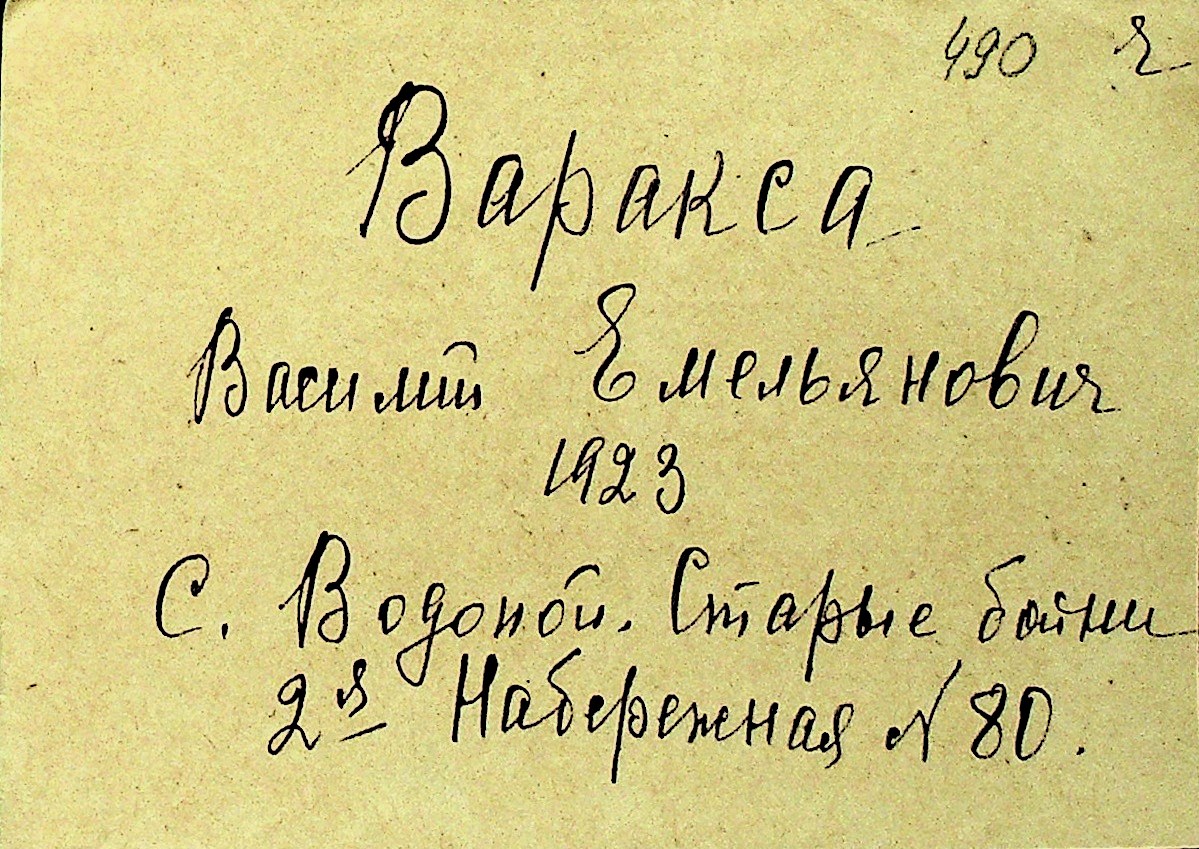 490 Я
Варакса
Василий Емельянович
1923
С. Водопой. Старые бойни
2я Набережная № 80.